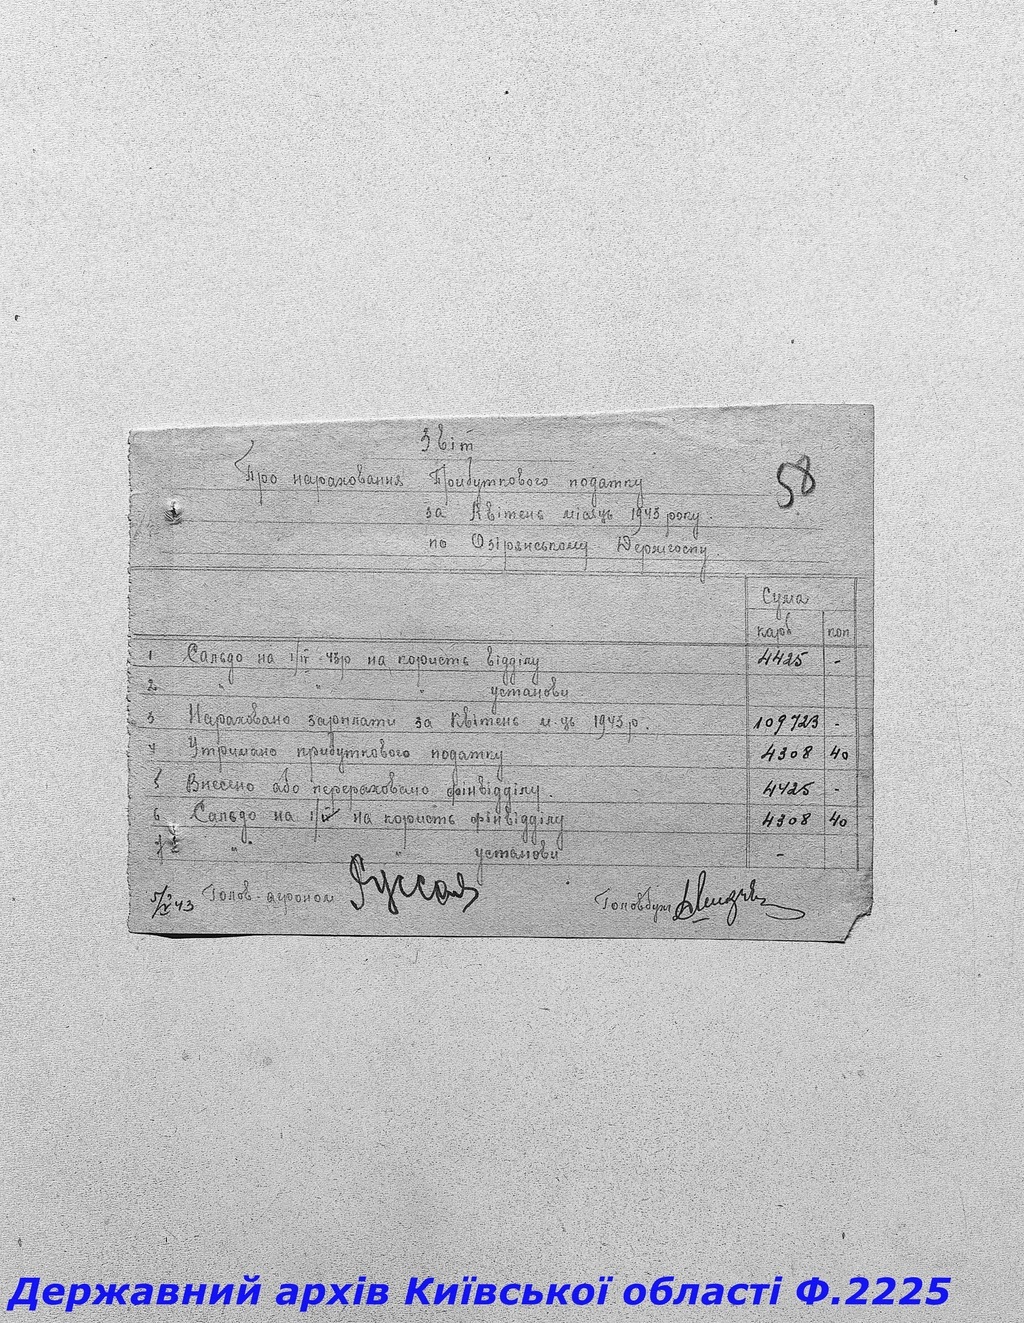 Звіт
58
Про нараховання Прибуткового податку
за Квітень місяць 1943 року.
по Озірянському Держгоспу.
Сума
карб коп
1 Сальдо на 1/IV-43р на користь відділу 4425 -
2 " " " установи
3 Нараховано зарплати за Квітень м-ць 1943р. 109723 -
4 Утримано прибуткового податку 4308 40
5 Внесено або перераховано фінвідділу. 4425 -
6 Сальдо на 1/V на користь фінвідділу 4308 40
7 " " " установи -
5/V 43 Голов-агроном Головбух
Державний архів Київської області Ф.2225